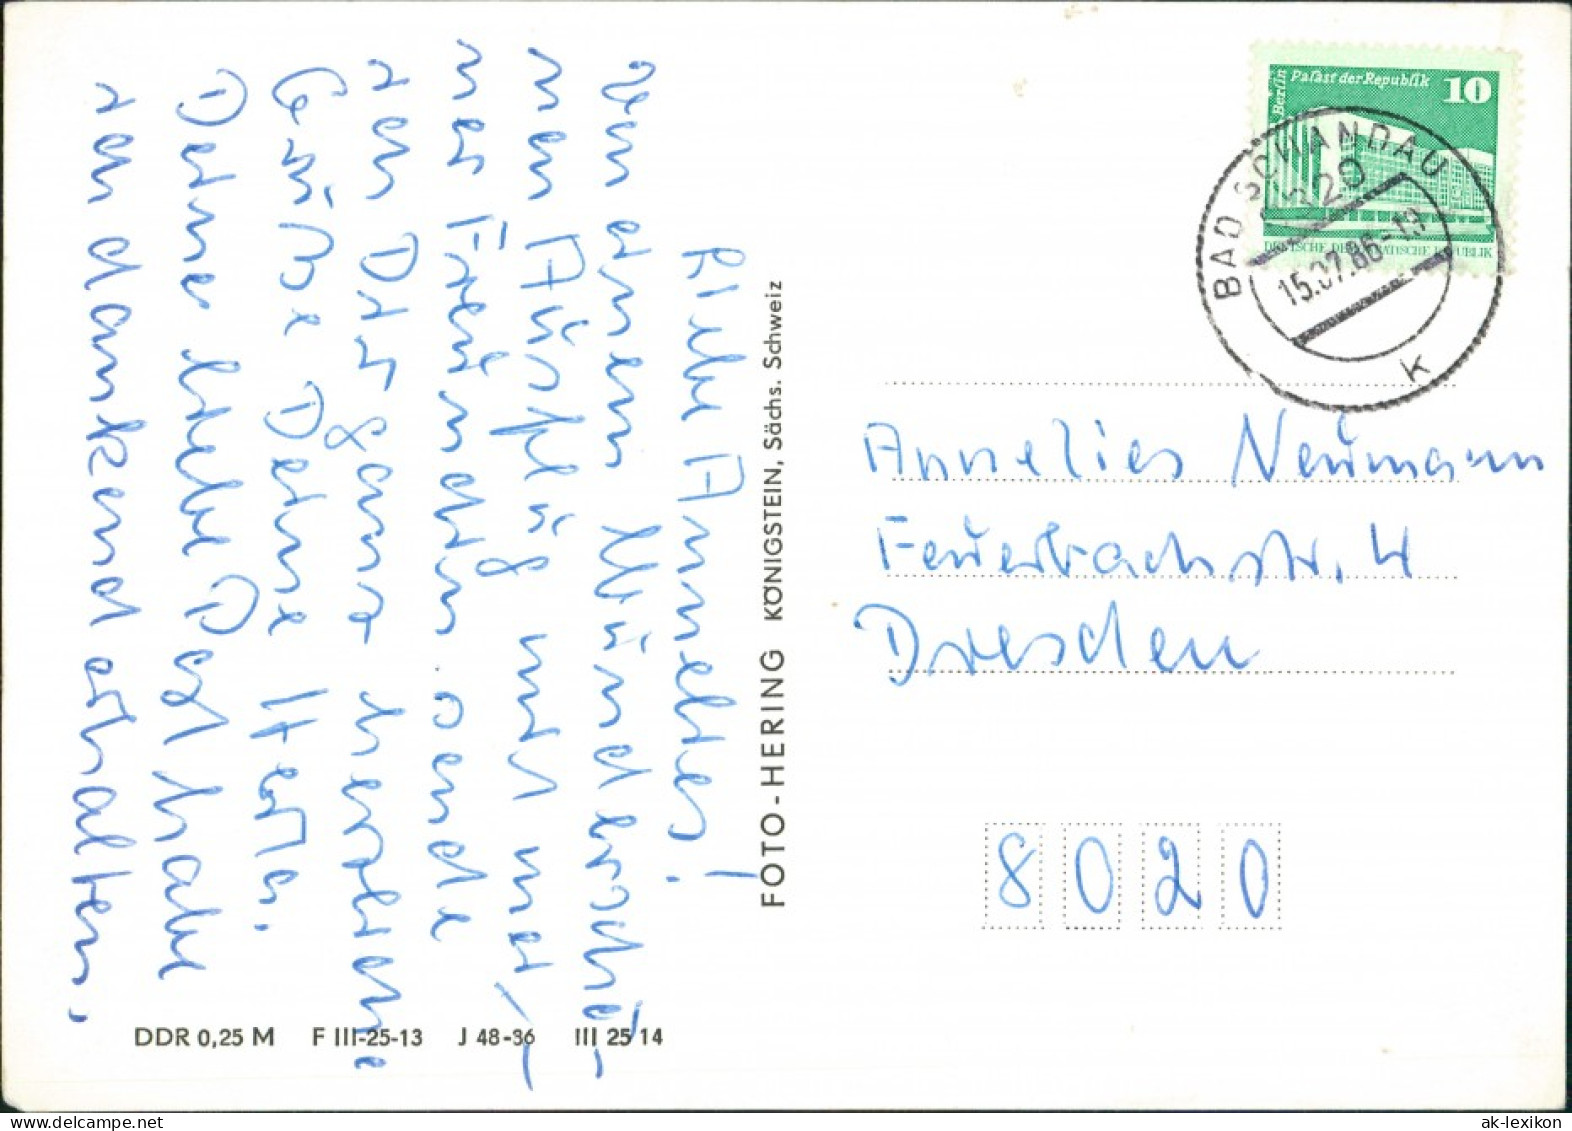 Liebe Annelies!
Von einem Wunderschö-
nen Ausflug mit mei-
ner Freundin sende
ich Dir ganz herzliche
Grüße Deine Herta.
Deine liebe Post habe
ich dankend erhalten,
FOTO-HERING KÖNIGSTEIN, Sächs. Schweiz
DDR 0,25 M F III-25-13 J 48-36 III 25 14
Berlin
Palast der Republik 10
DEUTSCHE DEMOKRATISCHE REPUBLIK
BAD SCHANDAU
8320
15.07.86-19
k
Annelies Neumann
Feuerbachstr. 4
Dresden
8020
ak-lexikon